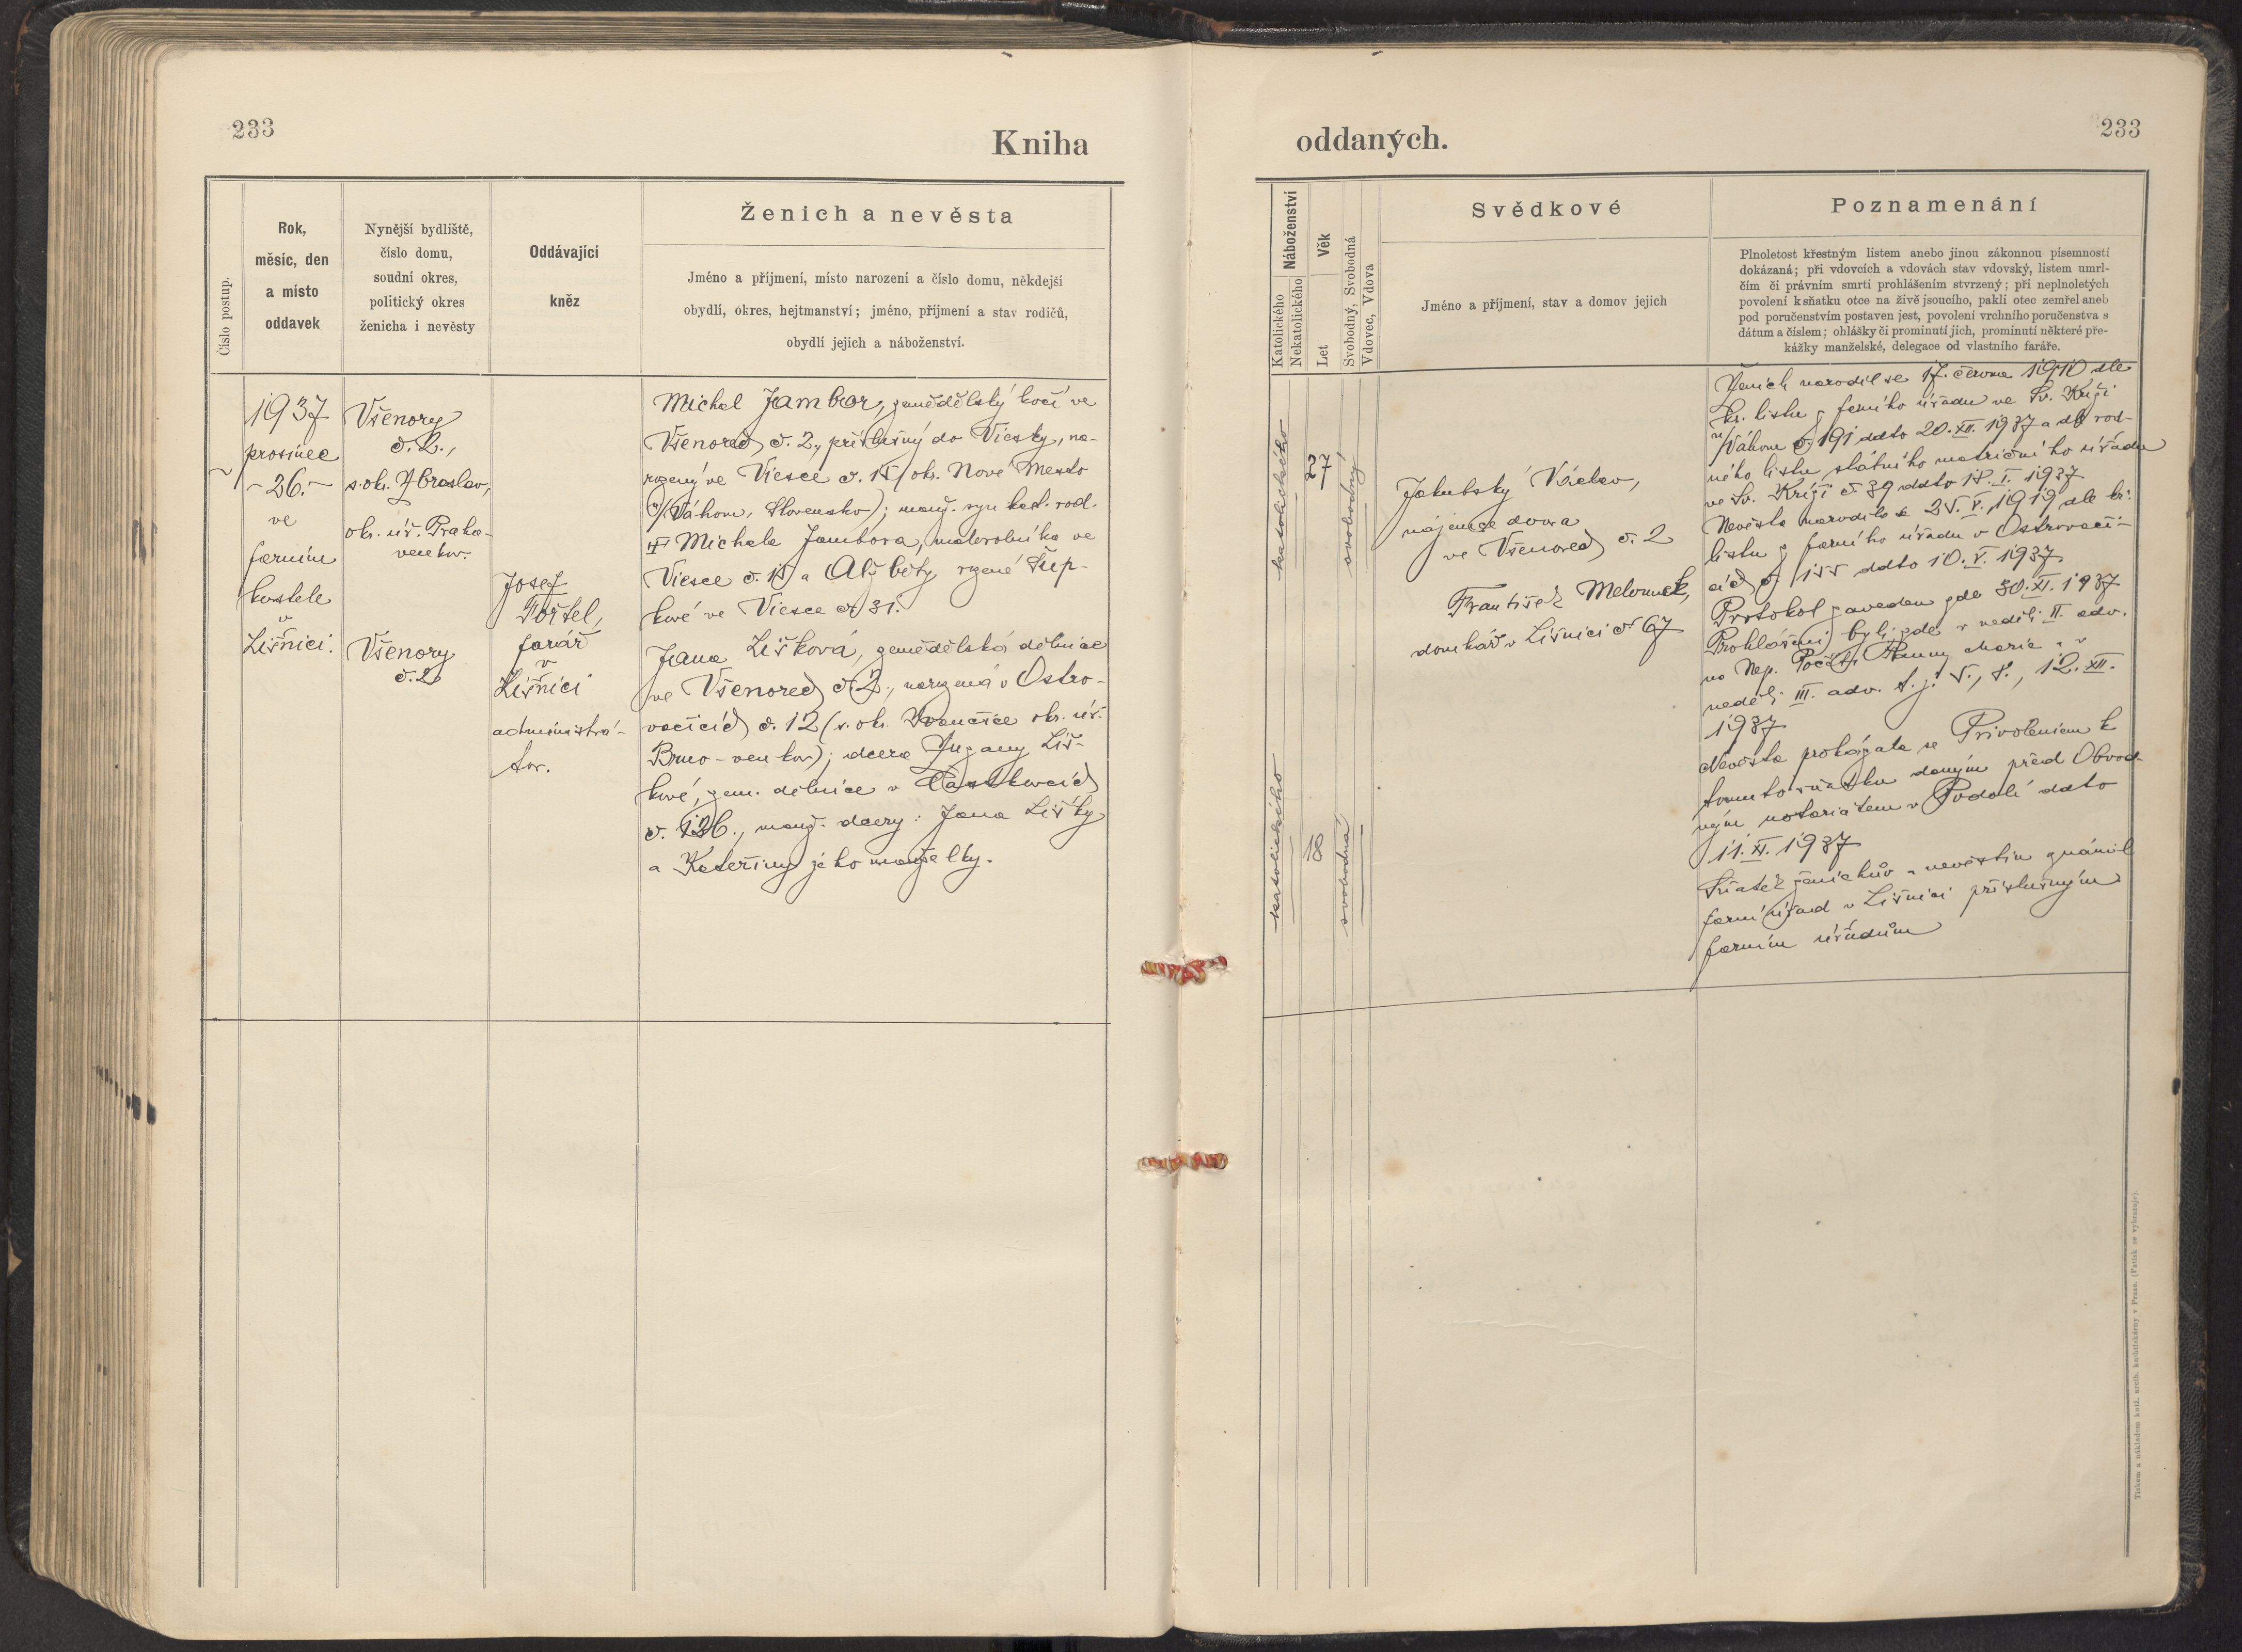 233
Kniha
Číslo postup.
Rok,
měsíc, den
a místo
oddavek
Nynější bydliště,
číslo domu,
soudní okres,
politický okres
ženicha i nevěsty
Oddávající
kněz
Ženich a nevěsta
Jméno a příjmení, místo narození a číslo domu, někdejší
obydlí, okres, hejtmanství; jméno, příjmení a stav rodičů,
obydlí jejich a náboženství.
1937
prosinec
- 26. -
ve
farním
kostele
v
Líšnici.
Všenory
č. 2.,
s. okr. Zbraslav,
okr. úř. Praha-
venkov.
Všenory
č. 2
Josef
farář
v
Líšnici
administrá-
tor.
Michal Jambor, zemědělský kočí ve
Všenorech č. 2., příslušný do Viesky, na-
rozený ve Viesce č. 15 (okr. Nové Mesto
n/Váhom, Slovensko); manž. syn kat. rod.
Michala Jambora, malorolníka ve
Viesce č. 15 a Alžběty rozené Štep-
kové ve Viesce č. 31.
Jana Lišková, zemědělská dělnice
ve Všenorech č. 2., narozená v Ostro-
vačicích č. 12 (s. okr. Ivančice okr. úř.
Brno-venkov); dcera Zuzany Liš-
kové, zem. dělnice v
č. 126., manž. dcery: Jana Lišky
a Kateřiny jeho manželky.
oddaných.
233
Náboženství
Katolického
Nekatolického
Věk
Let
Svobodný, Svobodná
Vdovec, Vdova
Svědkové
Jméno a příjmení, stav a domov jejich
Poznamenání
Plnoletost křestným listem anebo jinou zákonnou písemností
dokázaná; při vdovcích a vdovách stav vdovský, listem umrl-
čím či právním smrti prohlášením stvrzený; při neplnoletých
povolení k sňatku otce na živě jsoucího, pakli otec zemřel aneb
pod poručenstvím postaven jest, povolení vrchního poručenstva s
dátum a číslem; ohlášky či prominutí jich, prominutí některé pře-
kážky manželské, delegace od vlastního faráře.
katolického
27
svobodný
katolického
18
svobodná
Jakubský Václav,
nájemce dvora
ve Všenorech č. 2
František
domkář v Líšnici č. 67
Ženich narodil se 17. června 1910 dle
kř. listu z farního úřadu ve Sv. Kříži
n/Váhom č. 191 ddto 20. XII. 1937 a dle rod-
ného listu státního matričního úřadu
ve Sv. Kříži č. 39 ddto 18. I. 1937
Nevěsta narodila se 25. V. 1919 dle kř.
listu z farního úřadu v Ostrovači-
cích č. 155 ddto 10. V. 1937
Protokol zaveden zde 30. XI. 1937
Prohlášeni byli zde v neděli II. adv.
na Nep. Početí Panny Marie a v
neděli III. adv. t. j. 5., 8., 12. XII.
1937
Nevěsta prokázala se Přivolením k
tomuto sňatku daným před Obvod-
ným notariátem v Podolí ddto
11. XI. 1937
Sňatek ženichův a nevěstin oznámil
farní úřad v Líšnici příslušným
farním úřadům
Tiskem a nákladem kníž. arcib. knihtiskárny v Praze. (Patisk se vyhrazuje).